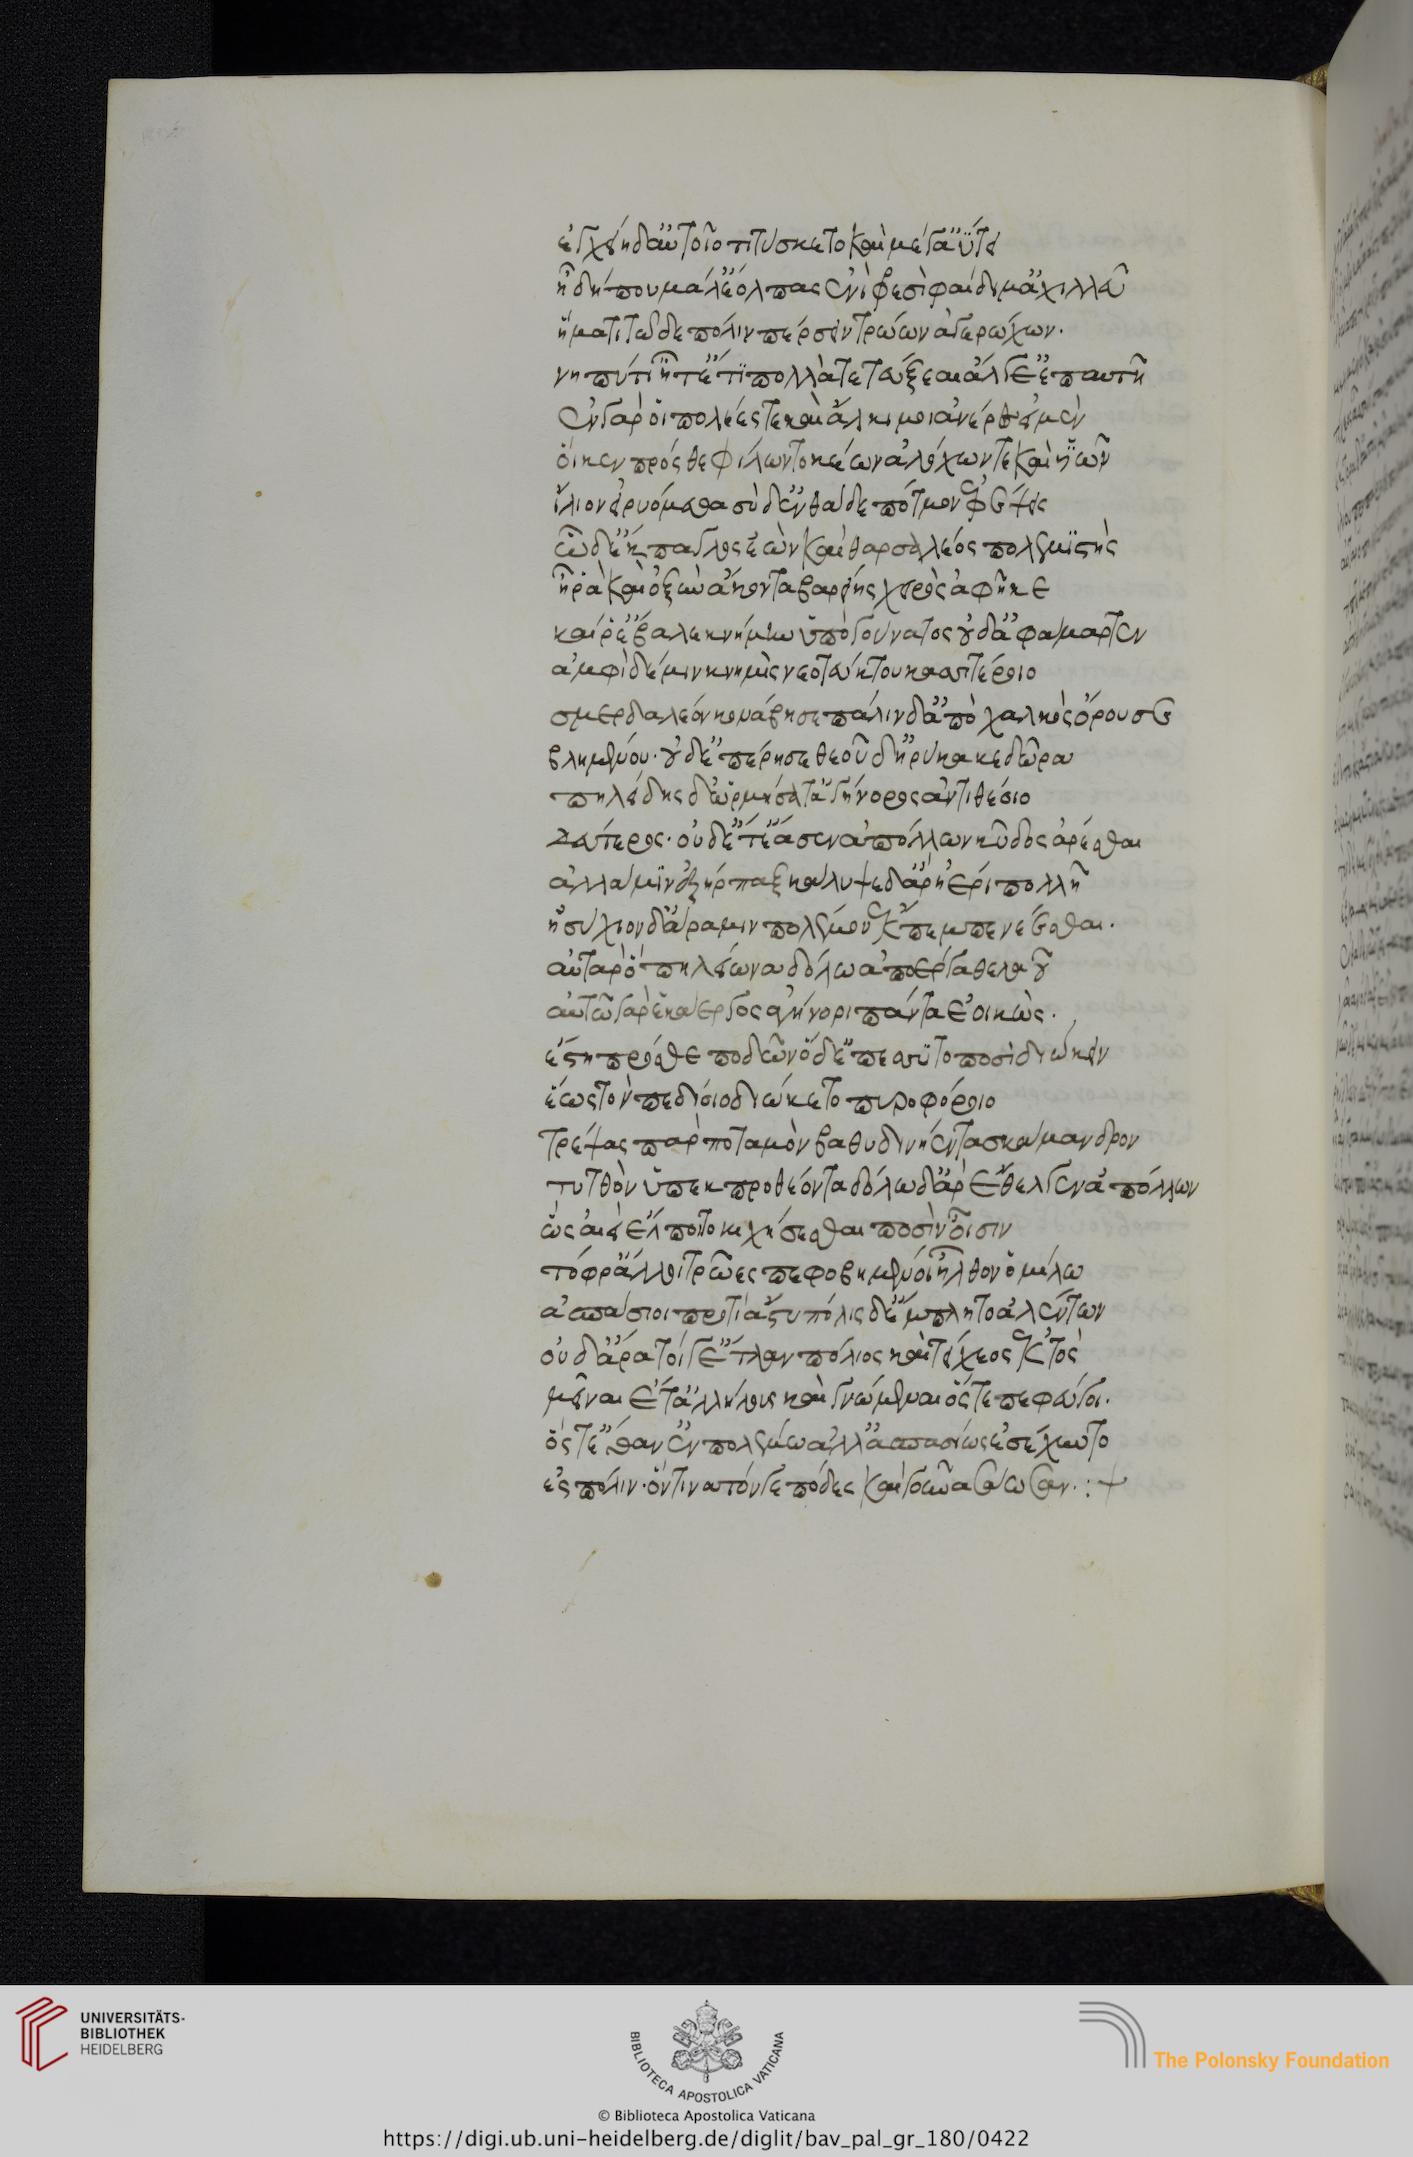 ἐγχείη δ' αὐτοῖο τιτύσκετο καὶ μέγ' ἀΰτει
ἦ δή που μάλ' ἔολπας ἐνὶ φρεσὶ φαίδιμ' ἀχιλλεῦ
ἤματι τῶδε πόλιν πέρσειν τρώων ἀγερώχων.
νηπύτι' ἦ τ' ἔτϊ πολλὰ τετεύξεται ἄλγε' ἐπ' αυτῆ
ἐν γάρ οἱ πολέες τε καὶ ἄλκιμοι ἀνέρες εἰμὲν
οἵ κεν πρόσθε φίλων τοκέων ἀλόχων τε καὶ υἱῶν
ἴλιον εἰρυόμεσθα σὺ δ' ἐνθάδε πότμον ἐφέψεις
ὧδ' ἔκπαγλος ἐὼν καὶ θαρσαλέος πολεμϊστὴς
ἦ ῥὰ καὶ ὀξὺν ἄκοντα βαρείης χειρὸς ἀφῆκε
καί ῥ' ἔβαλε κνήμην ὑπὸ γούνατος οὐδ' ἀφάμαρτεν
ἀμφὶ δέ μιν κνημὶς νεοτεύκτου κασσιτέροιο
σμερδαλέον κονάβησε πάλιν δ' ἀπὸ χαλκὸς ὄρουσε
βλημένου· οὐδ' ἐπέρησε θεοῦ δ' ἠρύκακε δῶρα
πηλείδης δ' ὡρμήσατ' ἀγήνορος ἀντιθέοιο
δεύτερος· οὐδέ τ' ἔασεν ἀπόλλων κῦδος ἀρέσθαι
ἀλλά μϊν ἐξήρπαξε κάλυψε δ' ἄρ' ἠέρι πολλῆ
ἡσύχιον δ' ἄρα μιν πολέμου ἔκπεμπε νέεσθαι.
αὐτὰρ ὃ πηλείωνα δόλω ἀποέργαθε λαοῦ
αὐτῶ γὰρ ἑκάεργος ἀγήνορι πάντα ἐοικὼς.
ἔστη πρόσθε ποδῶν ὃ δ' ἐπέσσυτο ποσὶ διώκειν
ἕως τὸν πεδίοιο διώκετο πυροφόροιο
τρέψας παρ ποταμὸν βαθυδινήεντα σκάμανδρον
τυτθὸν ὑπεκπροθέοντα δόλω δ' ἄρ ἔθελγεν ἀπόλλων
ὡς αἰεὶ ἔλποιτο κιχήσεσθαι ποσὶν οἷσιν
τόφρ' ἄλλοι τρῶες πεφοβημένοι ἦλθον ὁμίλω
ἀσπάσιοι προτὶ ἄστυ πόλις δ' ἔμπλητο ἀλέντων
οὐδ' ἄρα τοί γ' ἔτλαν πόλιος καὶ τείχεος ἐκτὸς
μεῖναι ἔτ' ἀλλήλους καὶ γνώμεναι ὅς τε πεφεύγοι.
ὅς τ' ἔθαν' ἐν πολέμω ἀλλ' ἀσπασίως ἐσέχυντο
ἐς πόλιν· ὅντινα τόνγε πόδες καὶ γοῦνα σάωσαν. :+
UNIVERSITÄTS-
BIBLIOTHEK
HEIDELBERG
BIBLIOTECA APOSTOLICA VATICANA
The Polonsky Foundation
© Biblioteca Apostolica Vaticana
https://digi.ub.uni-heidelberg.de/diglit/bav_pal_gr_180/0422